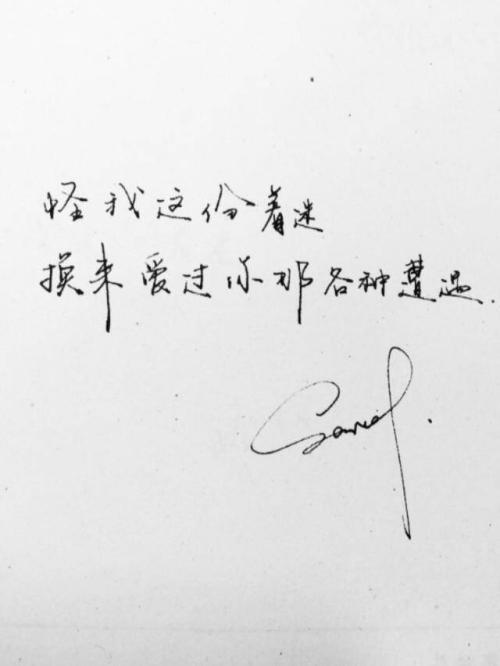 怪我这份着迷
换来爱过你那各种遭遇.